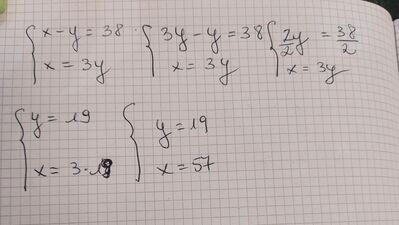 x - y = 38
x = 3y
3y - y = 38
x = 3y
2y/2 = 38/2
x = 3y
y = 19
x = 3 · 19
y = 19
x = 57